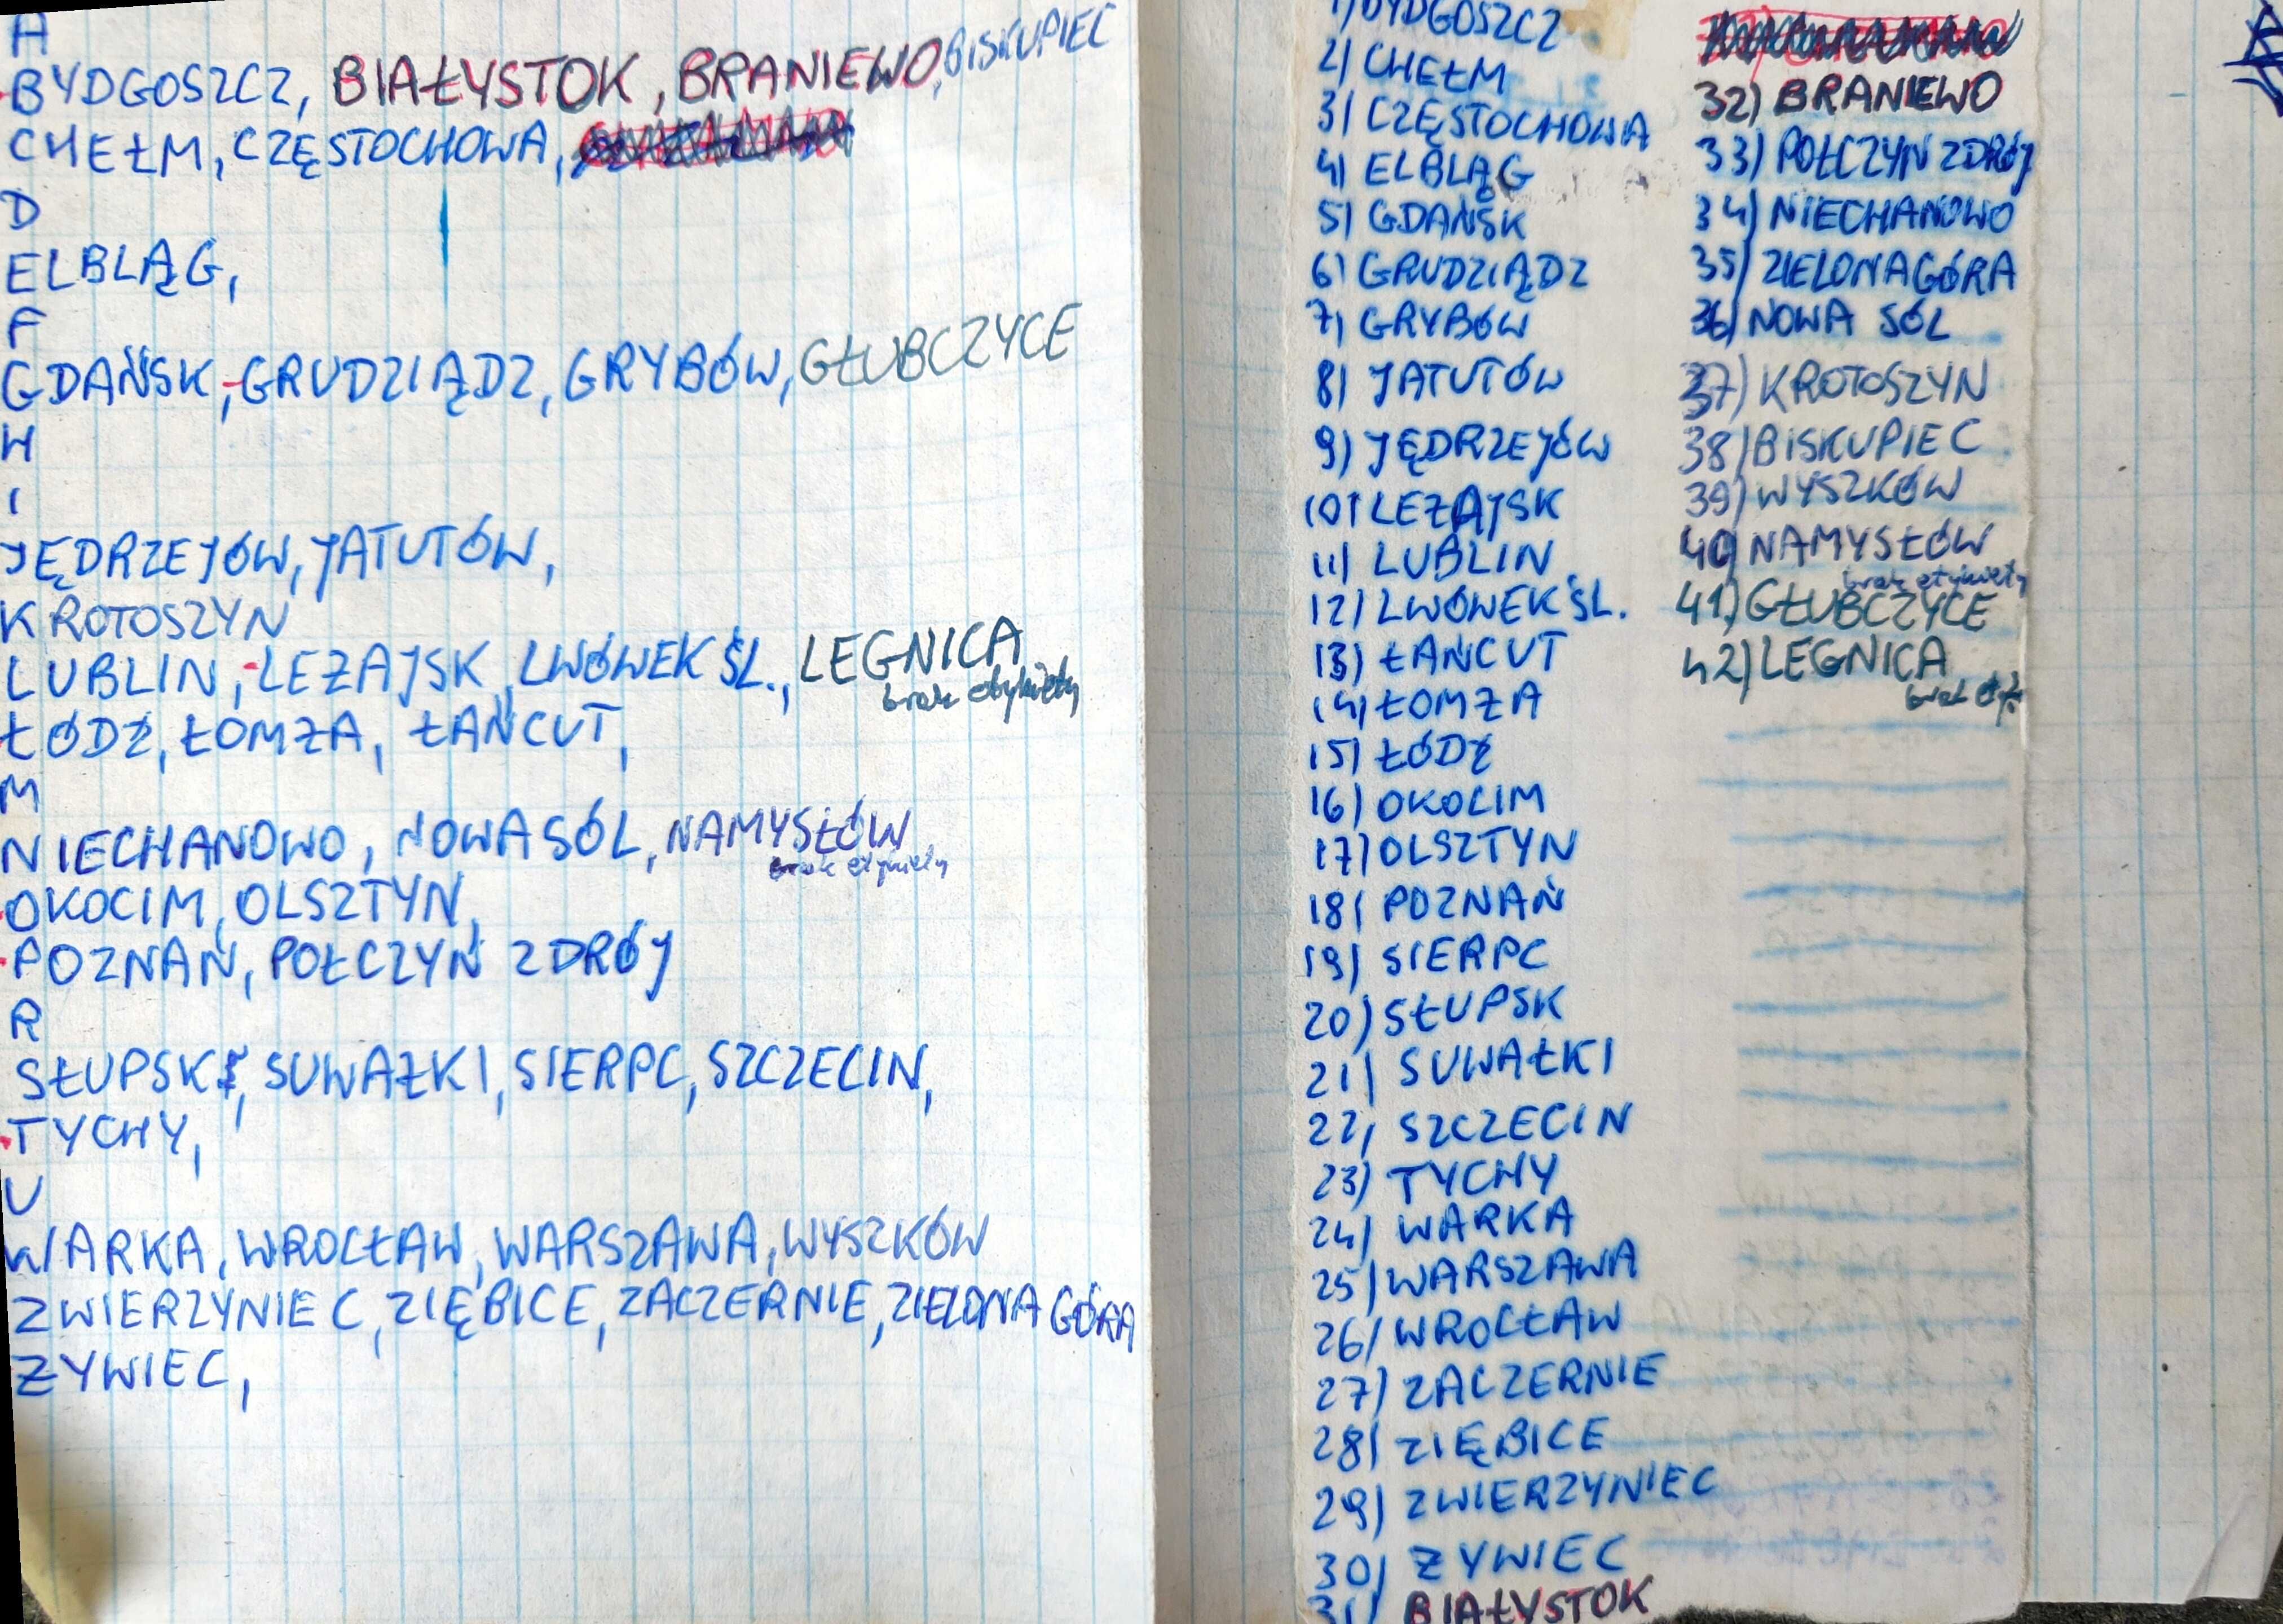 A
BYDGOSZCZ, BIAŁYSTOK, BRANIEWO, BISKUPIEC
CHEŁM, CZĘSTOCHOWA,
D
ELBLĄG,
F
GDAŃSK, GRUDZIĄDZ, GRYBÓW, GŁUBCZYCE
H
I
JĘDRZEJÓW, JATUTÓW,
KROTOSZYN
LUBLIN, LEŻAJSK, LWÓWEK ŚL., LEGNICA
brak etykiety
ŁÓDŹ, ŁOMŻA, ŁAŃCUT,
M
NIECHANOWO, NOWA SÓL, NAMYSŁÓW
brak etykiety
OKOCIM, OLSZTYN,
POZNAŃ, POŁCZYN ZDRÓJ
R
SŁUPSK, SUWAŁKI, SIERPC, SZCZECIN,
TYCHY,
U
WARKA, WROCŁAW, WARSZAWA, WYSZKÓW
ZWIERZYNIEC, ZIĘBICE, ZACZERNIE, ZIELONA GÓRA
ŻYWIEC,
1) BYDGOSZCZ
2) CHEŁM
3) CZĘSTOCHOWA
4) ELBLĄG
5) GDAŃSK
6) GRUDZIĄDZ
7) GRYBÓW
8) JATUTÓW
9) JĘDRZEJÓW
10) LEŻAJSK
11) LUBLIN
12) LWÓWEK ŚL.
13) ŁAŃCUT
14) ŁOMŻA
15) ŁÓDŹ
16) OKOCIM
17) OLSZTYN
18) POZNAŃ
19) SIERPC
20) SŁUPSK
21) SUWAŁKI
22) SZCZECIN
23) TYCHY
24) WARKA
25) WARSZAWA
26) WROCŁAW
27) ZACZERNIE
28) ZIĘBICE
29) ZWIERZYNIEC
30) ŻYWIEC
31) BIAŁYSTOK
32) BRANIEWO
33) POŁCZYN ZDRÓJ
34) NIECHANOWO
35) ZIELONA GÓRA
36) NOWA SÓL
37) KROTOSZYN
38) BISKUPIEC
39) WYSZKÓW
40) NAMYSŁÓW
brak etykiety
41) GŁUBCZYCE
42) LEGNICA
brak